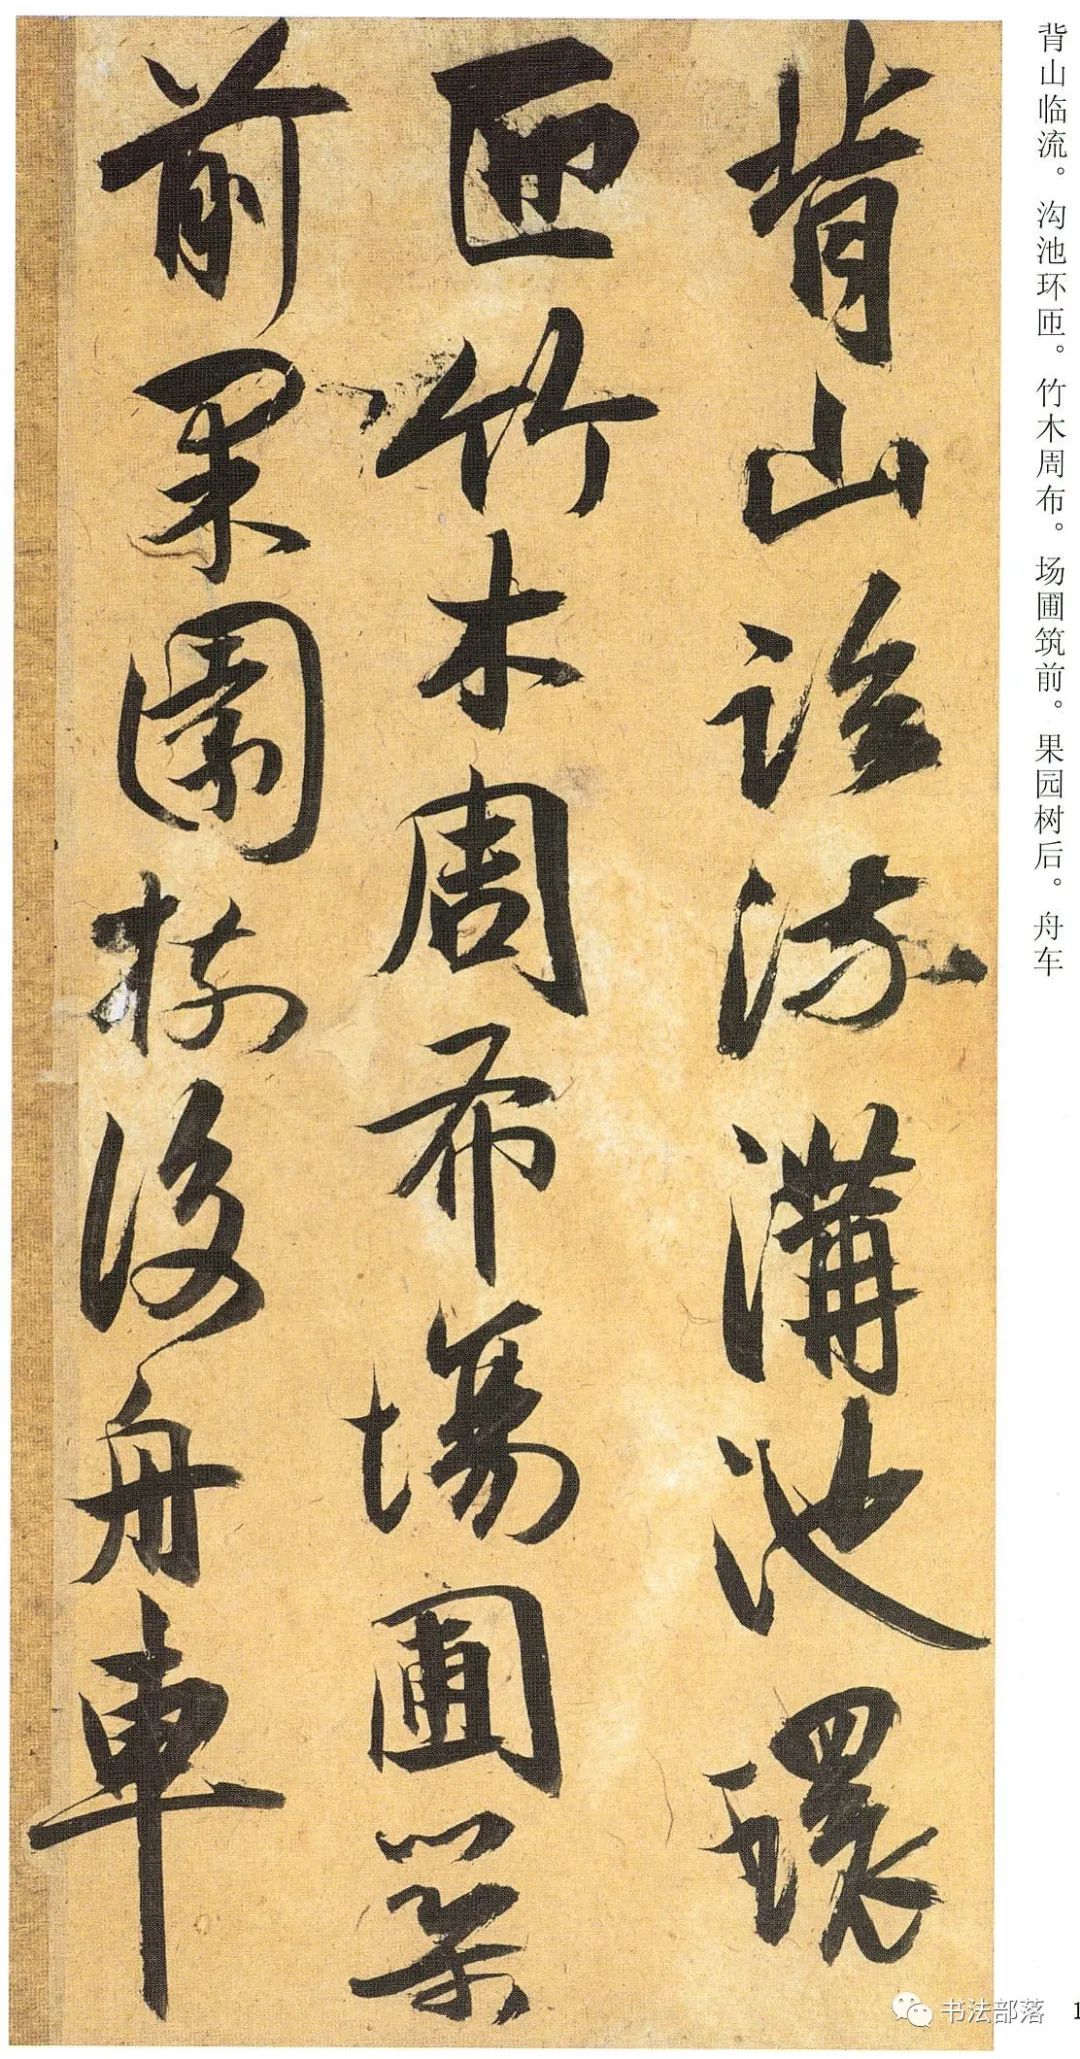 背山临流。沟池环匝。竹木周布。场圃筑前。果园树后。舟车
背山臨流溝池環
匝竹木周布場圃築
前果園樹後舟車
书法部落
1